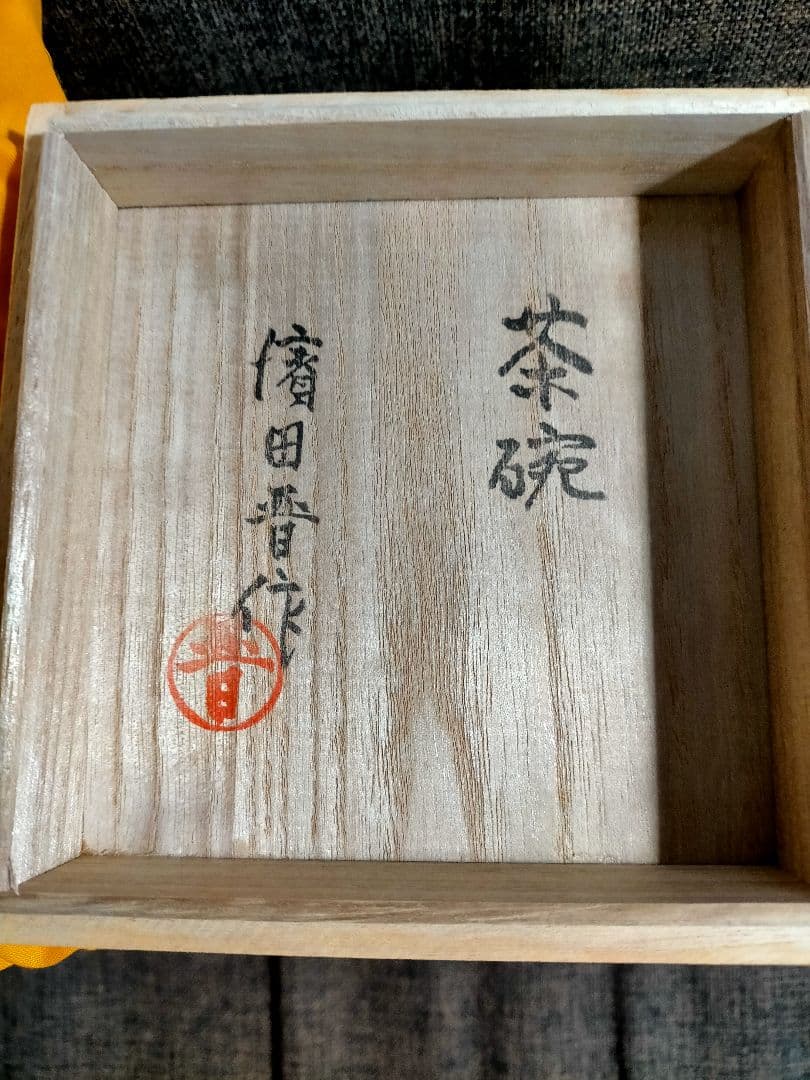 茶碗
濱田晋作
晋